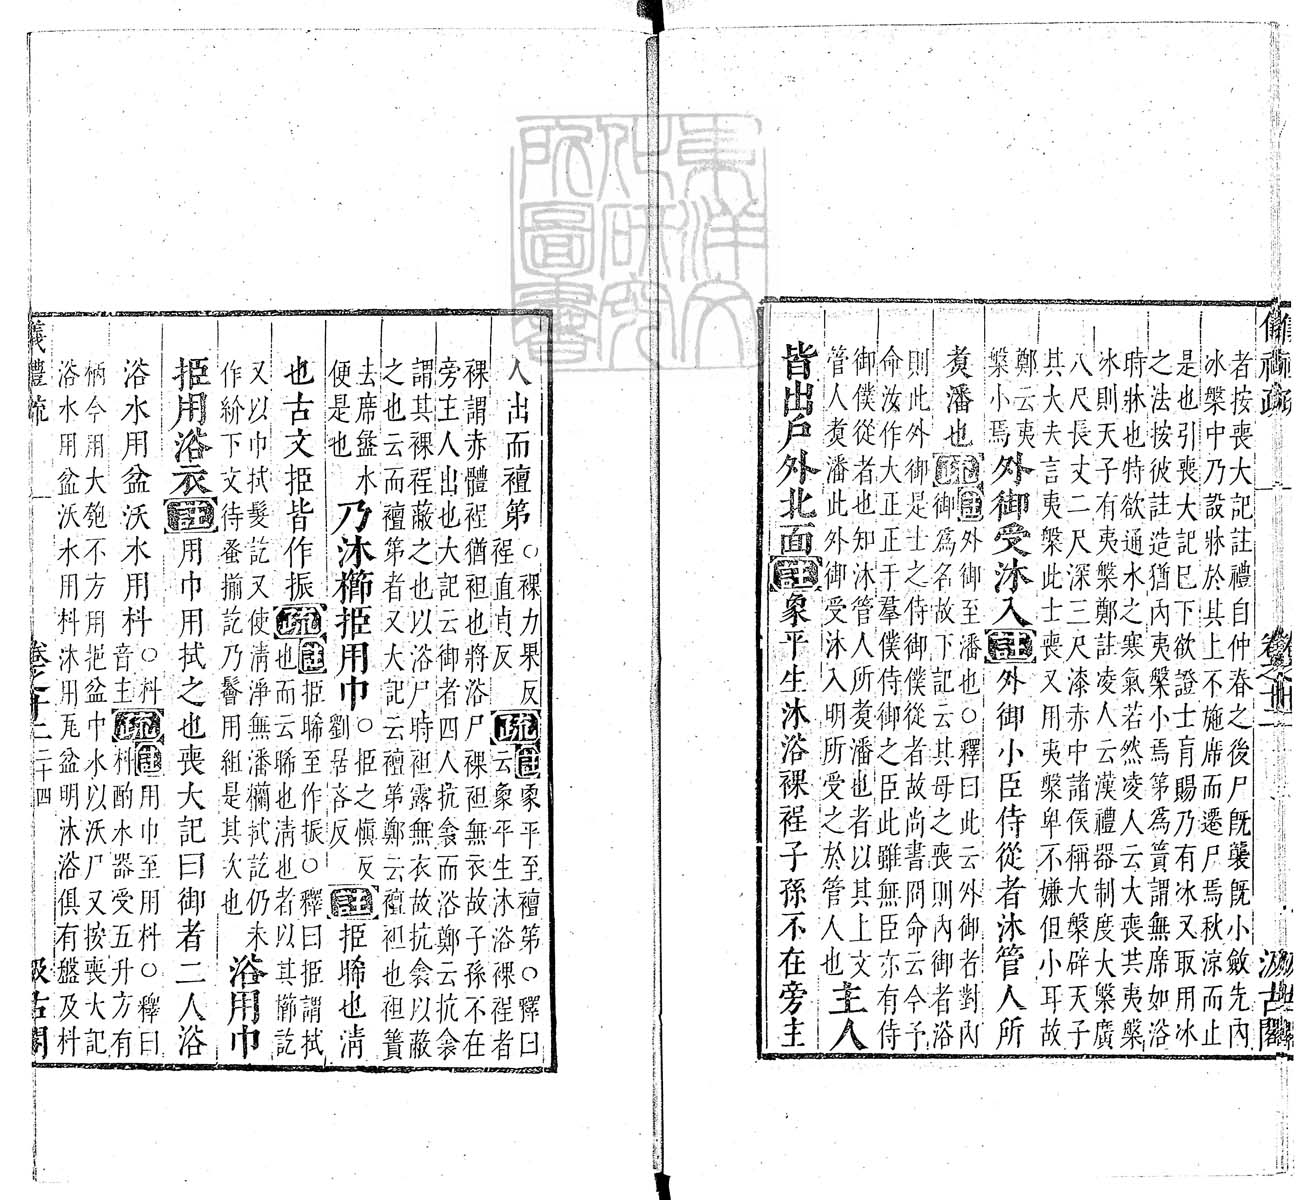 者按喪大記註禮自仲春之後尸旣襲旣小斂先內
冰槃中乃設牀於其上不施席而遷尸焉秋涼而止
是也引喪大記巳下欲證士肓賜乃有冰又取用冰
之法按彼註造猶內夷槃小焉第爲簀謂無席如浴
時牀也特欲通水之寒氣若然凌人云大喪共夷槃
冰則天子有夷槃鄭註凌人云漢禮器制度大槃廣
八尺長丈二尺深三尺漆赤中諸侯稱大槃辟天子
其大夫言夷槃此士喪又用夷槃卑不嫌但小耳故
鄭云夷
槃小焉
外御受沐入註外御小臣侍從者沐管人所
煑潘也疏
註外御至潘也○釋曰此云外御者對內
御爲名故下記云其母之喪則內御者浴
則此外御是士之侍御僕從者故尚書冏命云今予
命汝作大正正于羣僕侍御之臣此雖無臣亦有侍
御僕從者也知沐管人所煑潘也者以其上文
管人煑潘此外御受沐入明所受之於管人也
主人
皆出戶外北面註象平生沐浴裸裎子孫不在旁主
人出而襢第
○裸力果反
裎直貞反
疏
註象平至襢第○釋曰
云象平生沐浴裸裎者
裸謂赤體裎猶袒也將浴尸裸袒無衣故子孫不在
旁主人出也大記云御者四人抗衾而浴鄭云抗衾
謂其裸裎蔽之也以浴尸時袒露無衣故抗衾以蔽
之也云而襢第者又大記云襢第鄭云襢袒也袒簀
去席盝水
便是也
乃沐櫛挋用巾
○挋之愼反
劉居吝反
註挋晞也淸
也古文挋皆作振疏
註挋晞至作振○釋曰挋謂拭
也而云晞也淸也者以其櫛訖
又以巾拭髮訖又使淸淨無潘糷拭訖仍未
作紒下文待蚤揃訖乃鬠用組是其次也
浴用巾
挋用浴衣註用巾用拭之也喪大記曰御者二人浴
浴水用盆沃水用枓
○枓
音主
疏
註用巾至用枓○釋曰
枓酌水器受五升方有
柄今用大匏不方用挹盆中水以沃尸又按喪大記
浴水用盆沃水用枓沐用瓦盆明沐浴俱有盤及枓
儀禮疏
二十四
汲古閣